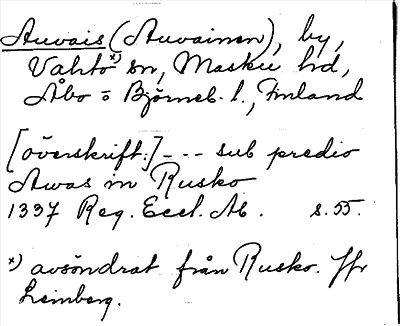 Auvais (Auvainen), by,
Vahto *) sn, Masku hd,
Åbo o Björneb. l., Finland
[överskrift:] - - - sub predio
Awas in Rusko
1337 Reg. Eccl. Ab. s. 55.
*) avsöndrat från Rusko. Jfr
Leinberg.